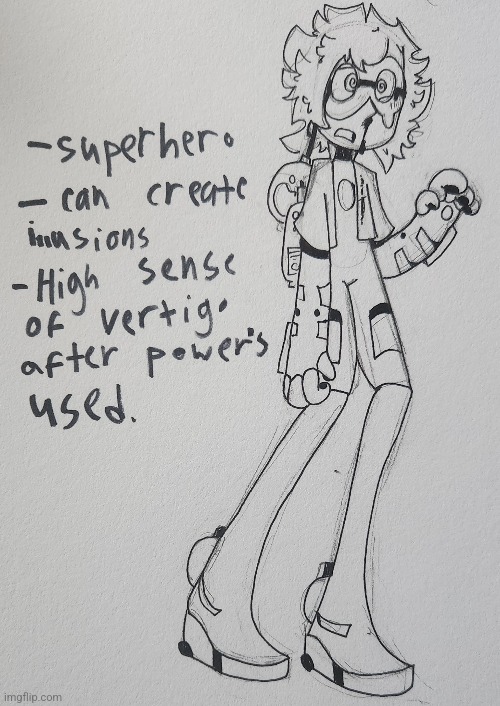 -superhero
- can create
illusions
-High sense
of vertigo
after power's
used.
imgflip.com